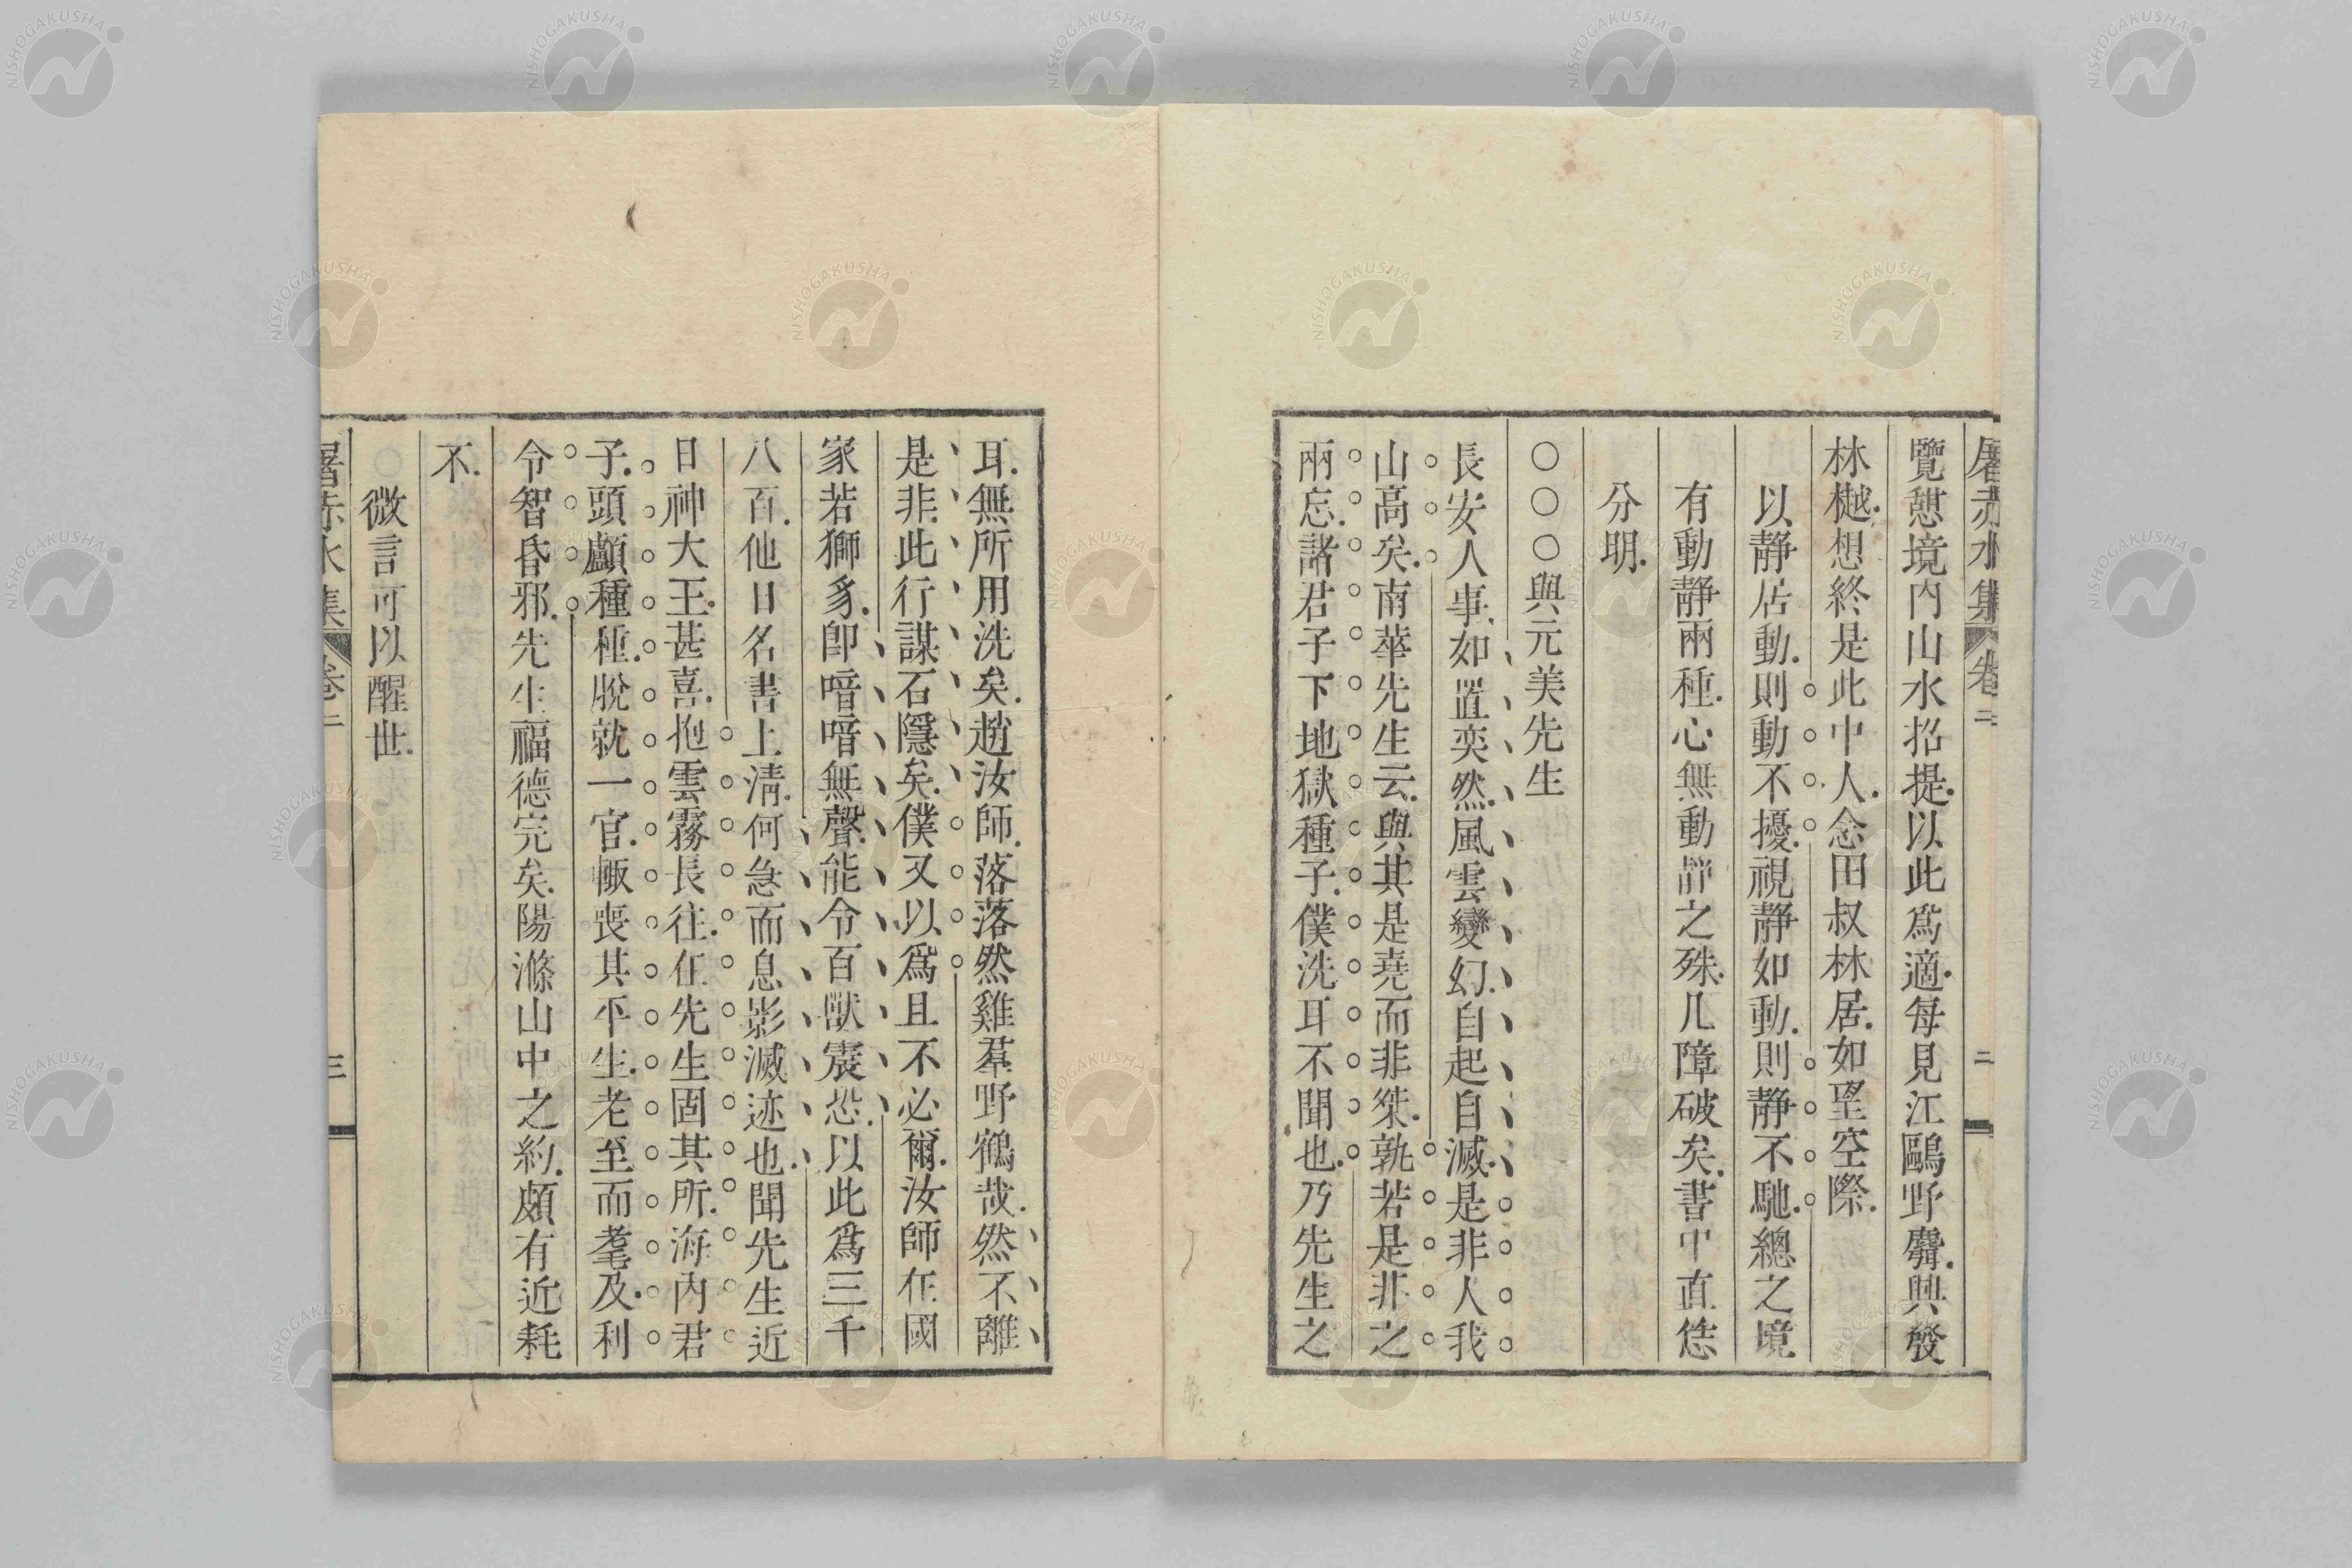 屠赤水集 卷二 二
覽憇境內山水招提以此爲適每見江鷗野麛興發
林樾想終是此中人念田叔林居如望空際
以靜居動則動不擾視靜如動則靜不馳總之境
有動靜兩種心無動靜之殊凡障破矣書中直恁
分明
○○○與元美先生
長安人事如置奕然風雲變幻自起自滅是非人我
山高矣南華先生云與其是堯而非桀孰若是非之
兩忘諸君子下地獄種子僕洗耳不聞也乃先生之
耳無所用洗矣趙汝師落落然雞羣野鶴哉然不離
是非此行謀石隱矣僕又以爲且不必爾汝師在國
家若獅豸卽喑喑無聲能令百獸震恐以此爲三千
八百他日名書上淸何急而息影滅迹也聞先生近
日神大王甚喜抱雲霧長往在先生固其所海內君
子頭顱種種脫就一官輒喪其平生老至而耄及利
令智昏邪先生福德完矣陽滌山中之約頗有近耗
不
微言可以醒世
屠赤水集 卷二 三
NISHOGAKUSHA